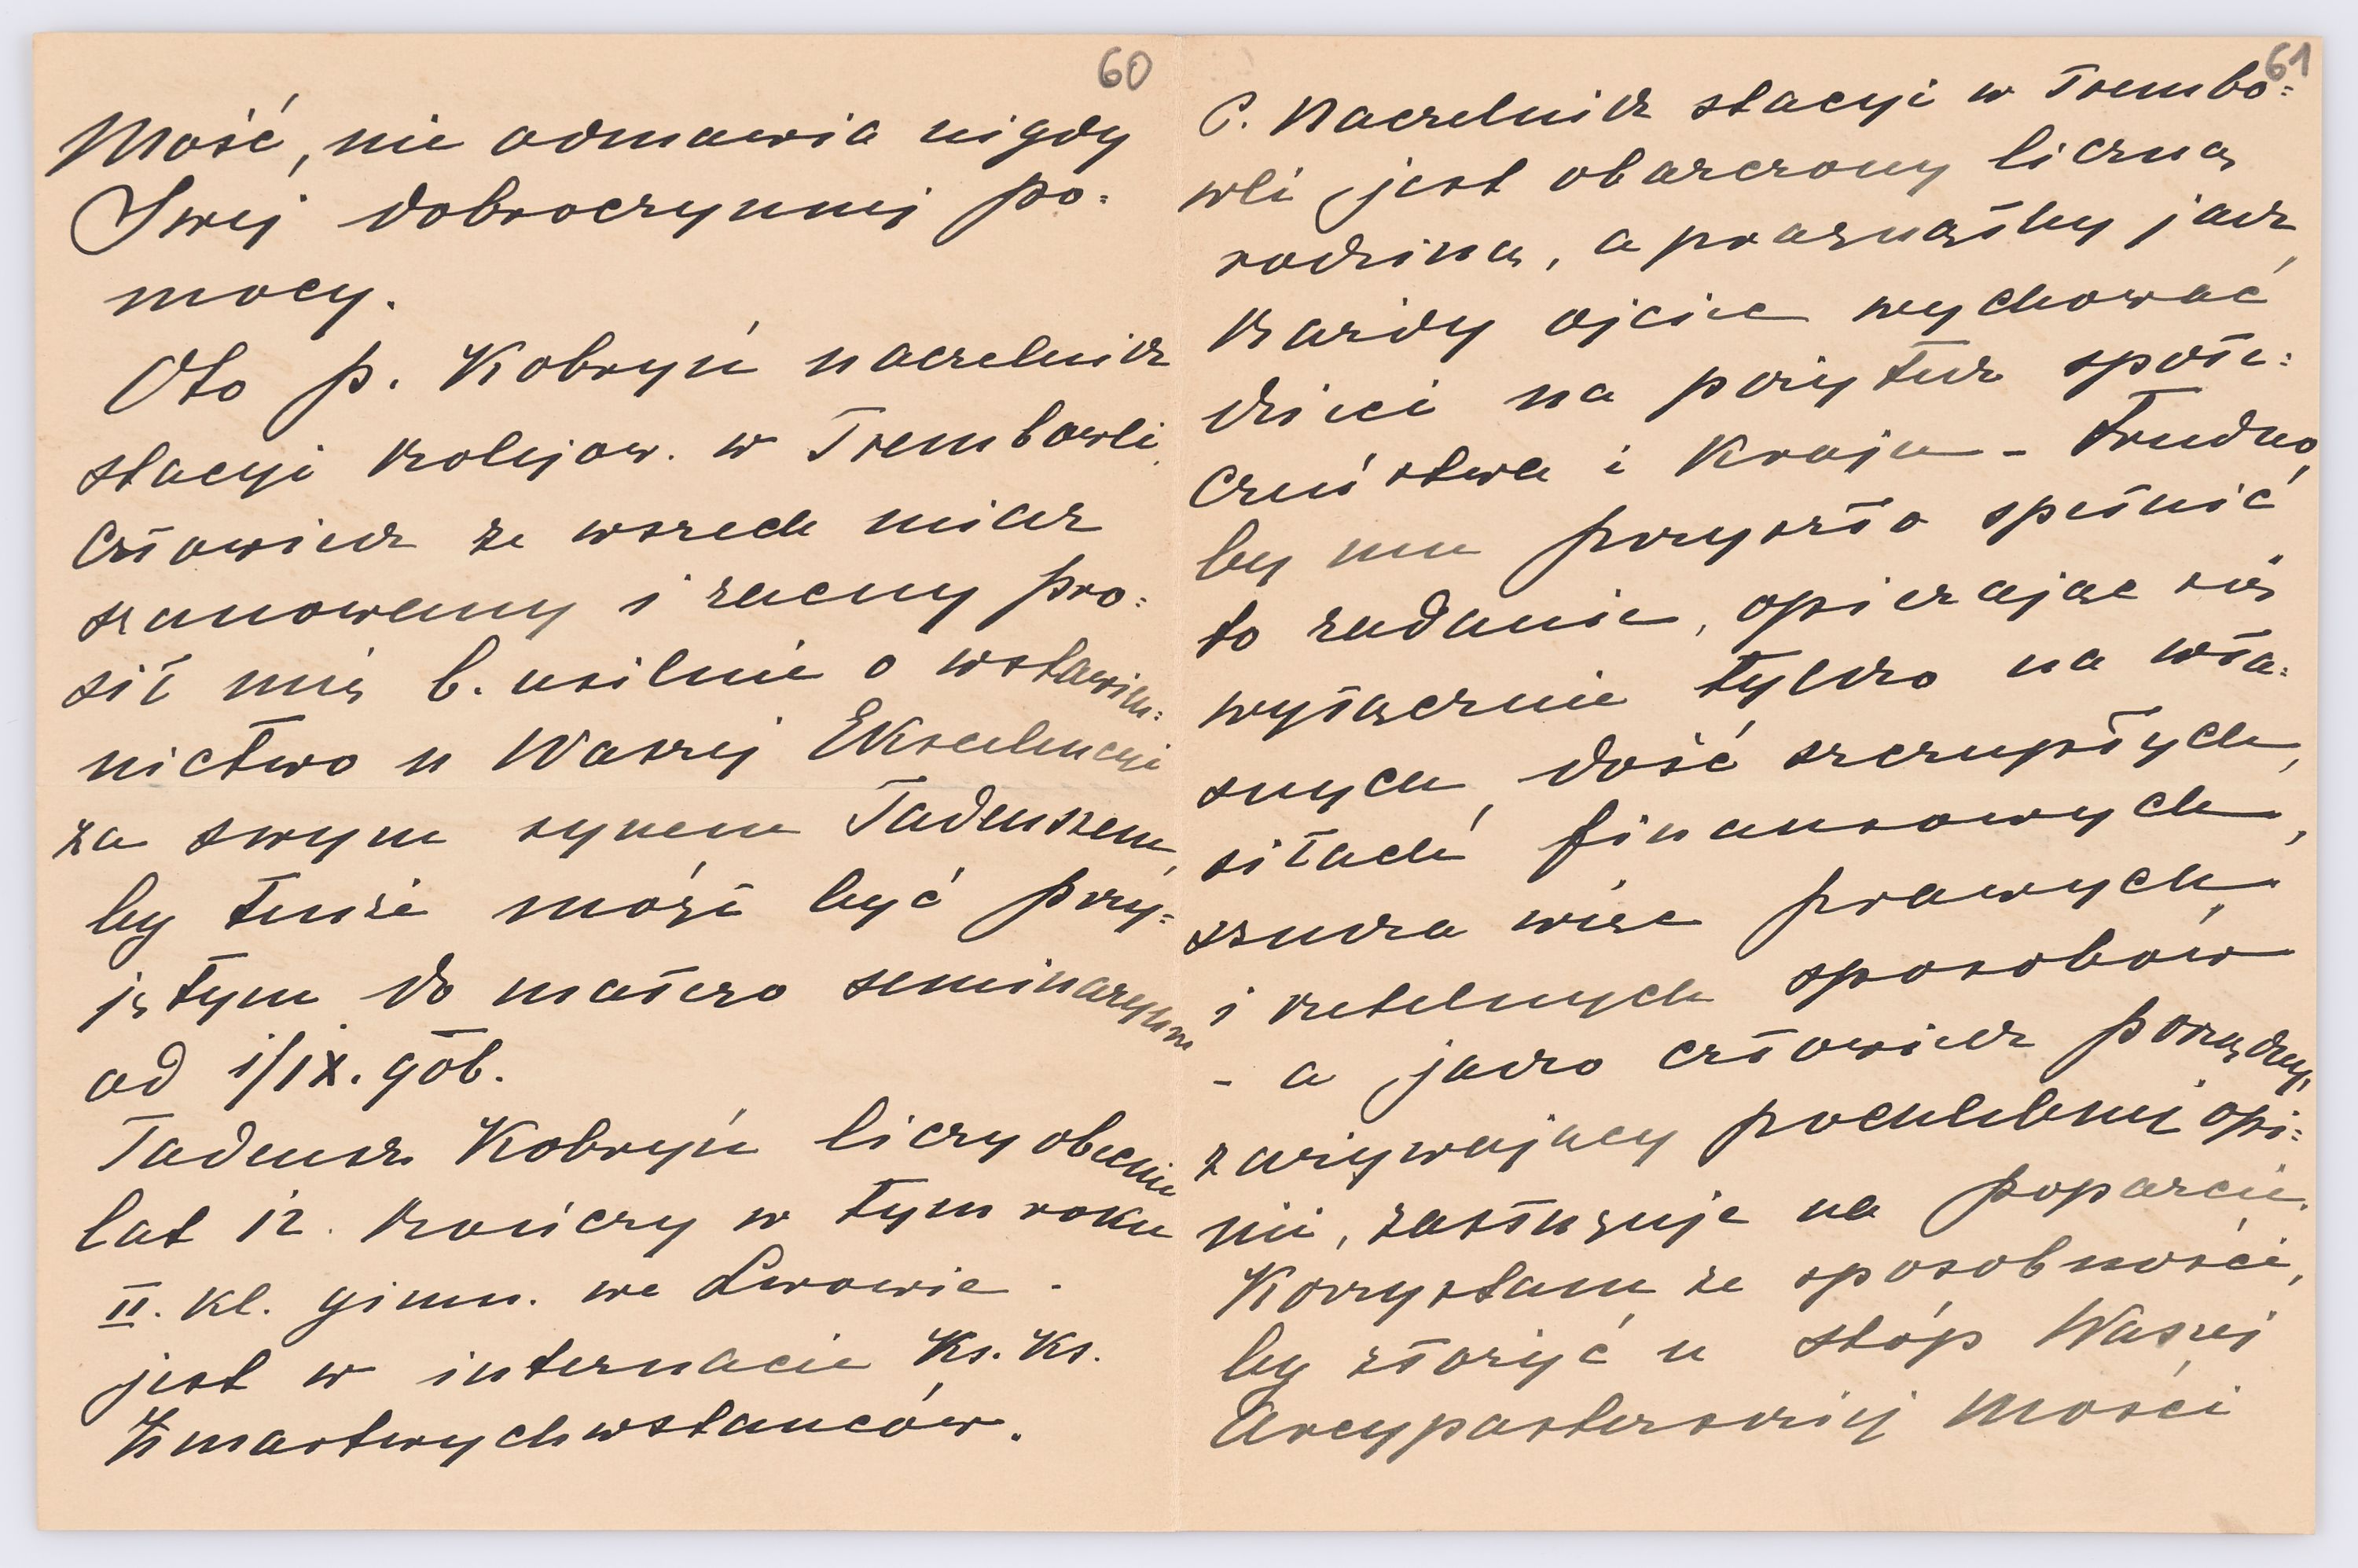 60
Mość, nie odmawia nigdy
Swej dobroczynnej po=
mocy.
Oto p. Kobryń naczelnik
stacyi kolejow. w Trembowli,
człowiek ze wszech miar
szanowany i zacny pro=
sił mię b. usilnie o wstawien=
nictwo u Waszej Ekscelencyi
za swym synem Tadeuszem,
by tenże mógł być przy=
jętym do małego seminaryum
od 1/IX. gōb.
Tadeusz Kobryń liczy obecnie
lat 12. kończy w tym roku
II. kl. gimn. we Lwowie -
jest w internacie Ks. Ks.
Zmartwychwstańców.
61
P. Naczelnik stacyi w Trembo=
wli jest obarczony liczną
rodziną, a pragnąłby jak
każdy ojciec wychować
dzieci na pożytek społe=
czeństwa i Kraju - trudno,
by mu przyszło spełnić
to zadanie, opierając się
wyłącznie tylko na wła=
snych, dość szczupłych,
siłach finansowych,
szuka więc prawych,
i rzetelnych sposobów
- a jako człowiek porządny,
zażywający pochlebnej opi=
nii, zasługuje na poparcie.
Korzystam ze sposobności,
by złożyć u stóp Waszej
Arcypasterskiej Mości